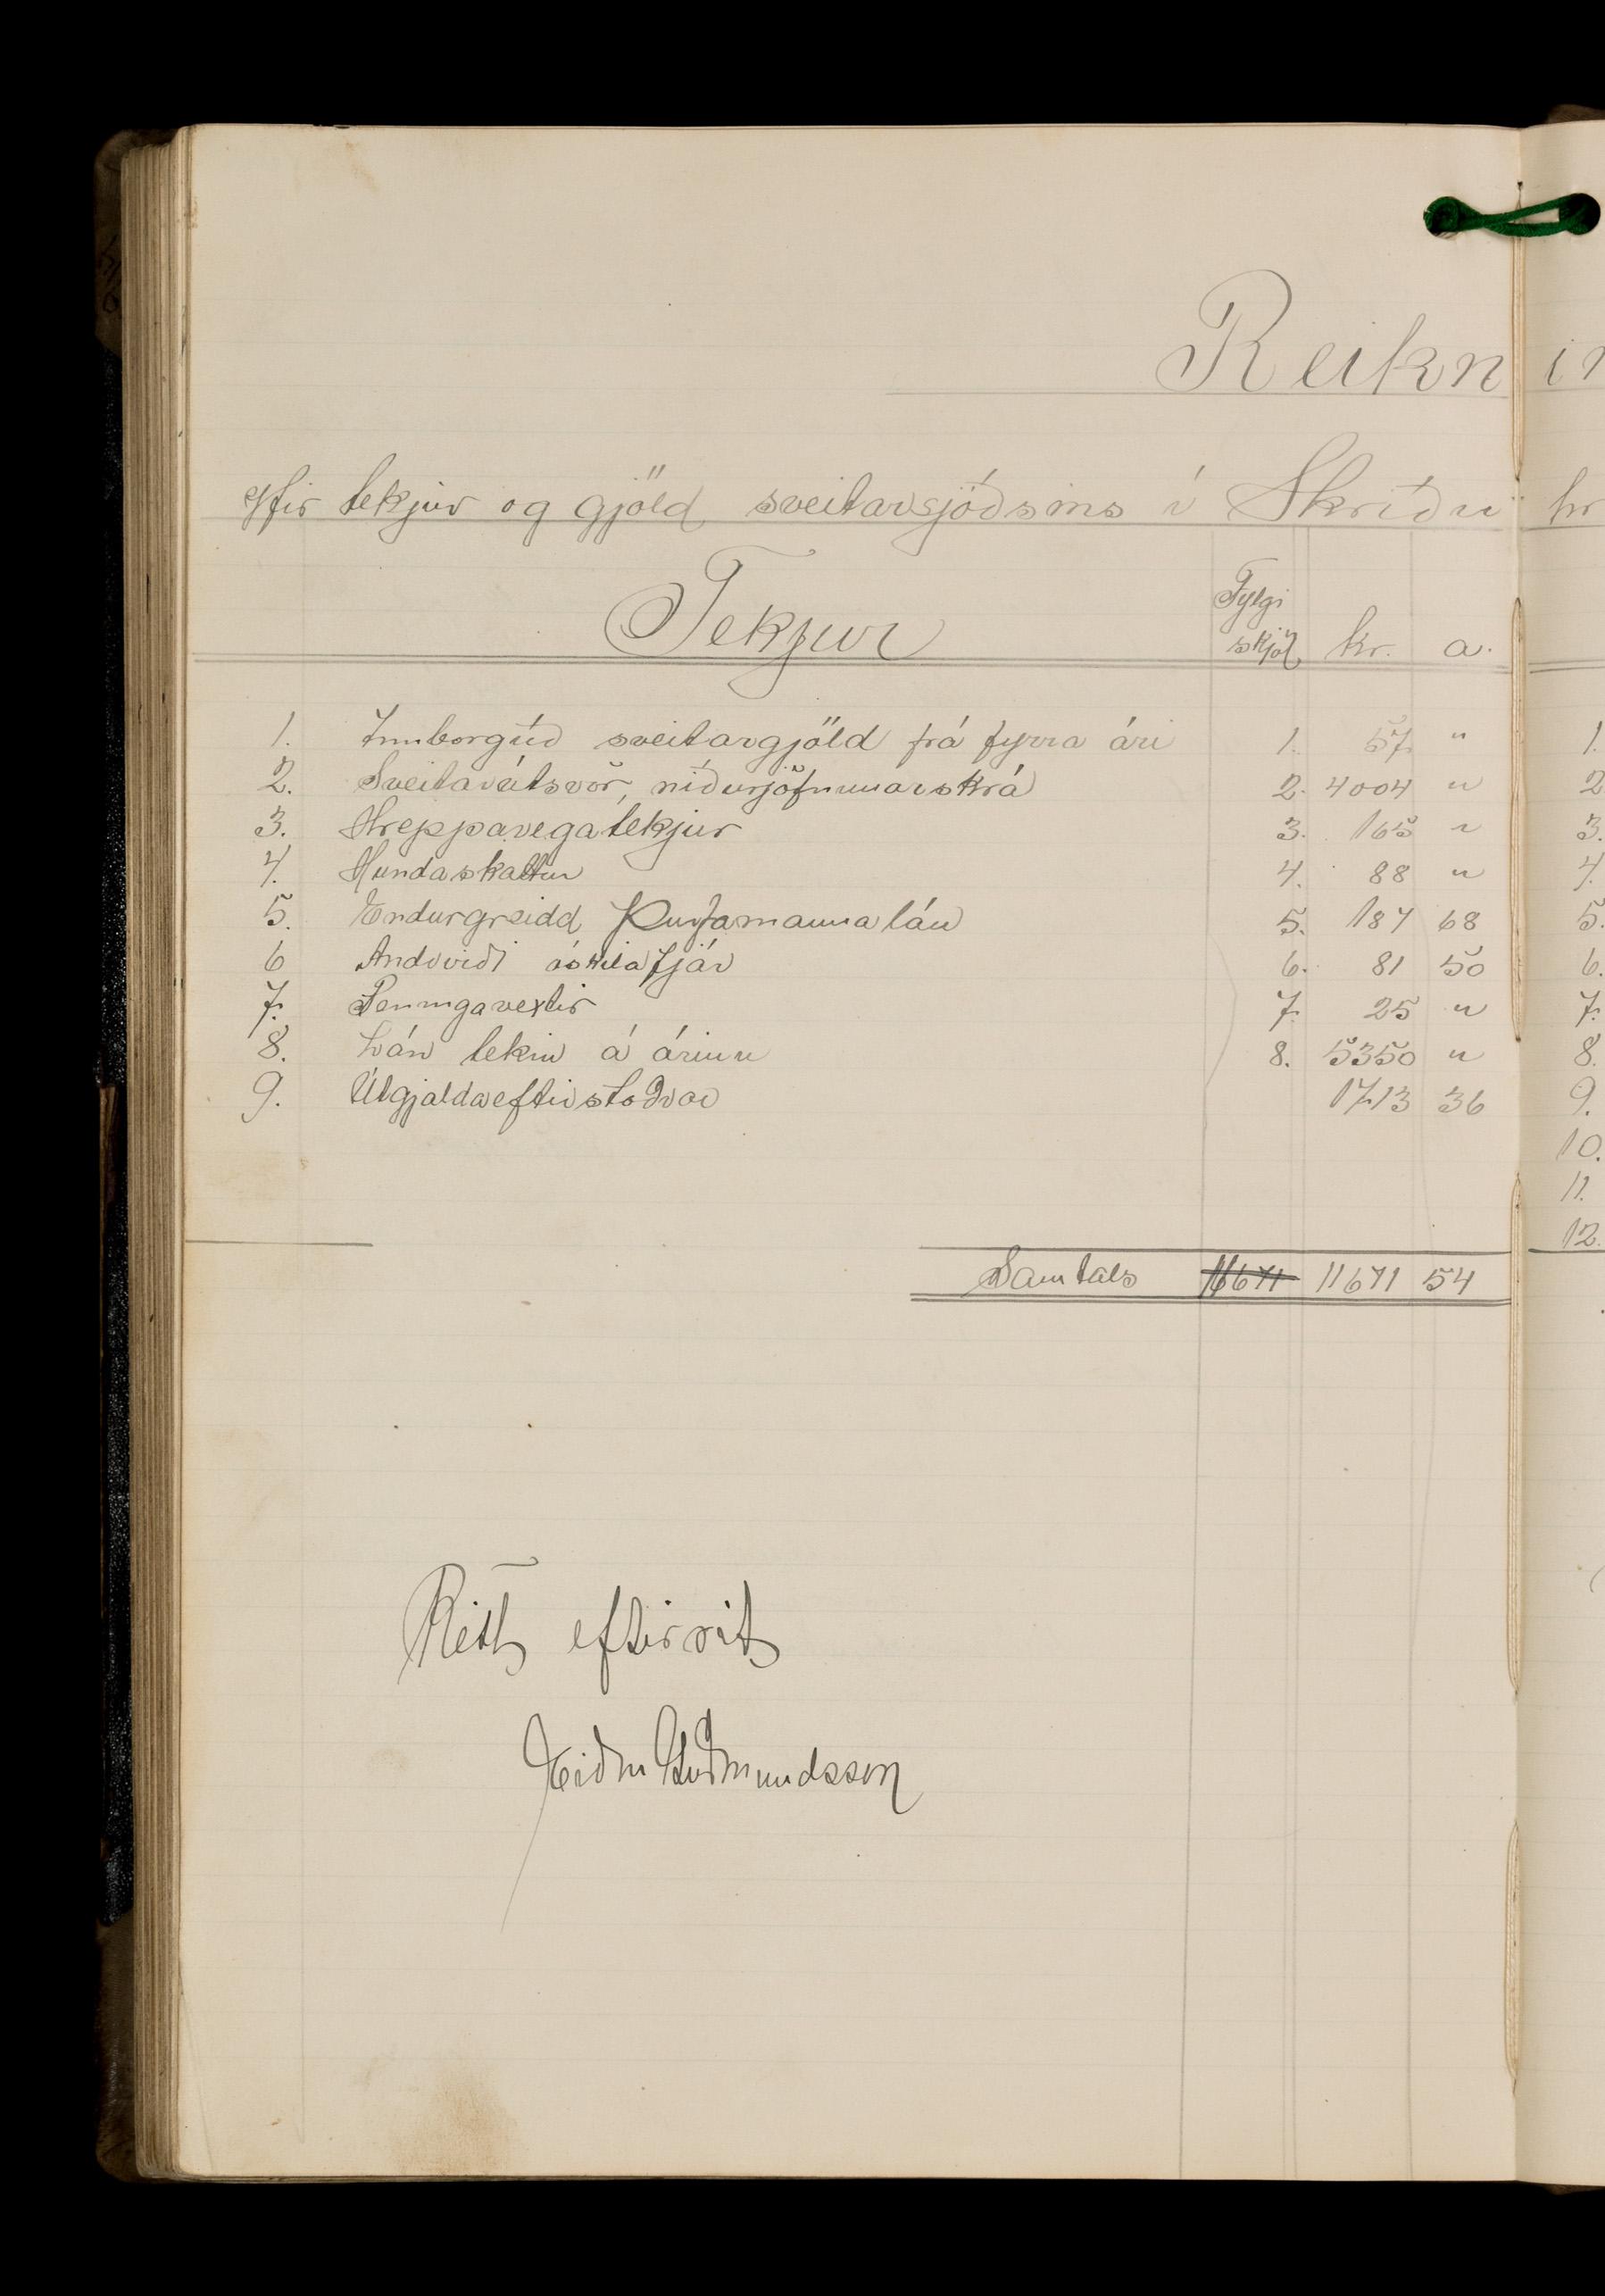 Reikn in
yfir tekjur og gjöld sveitarsjóðsins í Skriðu hr
Tekjur Fylgi skjöl kr. a.
1. Innborguð sveitargjöld frá fyrra ári 1. 57 " 1.
2. Sveitaútsvör, niðurjöfnunarskrá 2. 4004 " 2
3. Hreppavegatekjur 3. 165 " 3.
4. Hundaskattur 4. 88 " 4.
5. Endurgreidd Þurfamannalán 5. 187 68 5.
6 Andvirði óskilafjár 6. 81 50 6.
7. Peningavextir 7. 25 " 7.
8. Lán tekin á árinu 8. 5350 " 8.
9. Útgjaldaeftirstöðvar 1713 36 9.
10.
11.
12.
Samtals 11671 11671 54
Rétt eftirrit
Eiður Guðmundsson